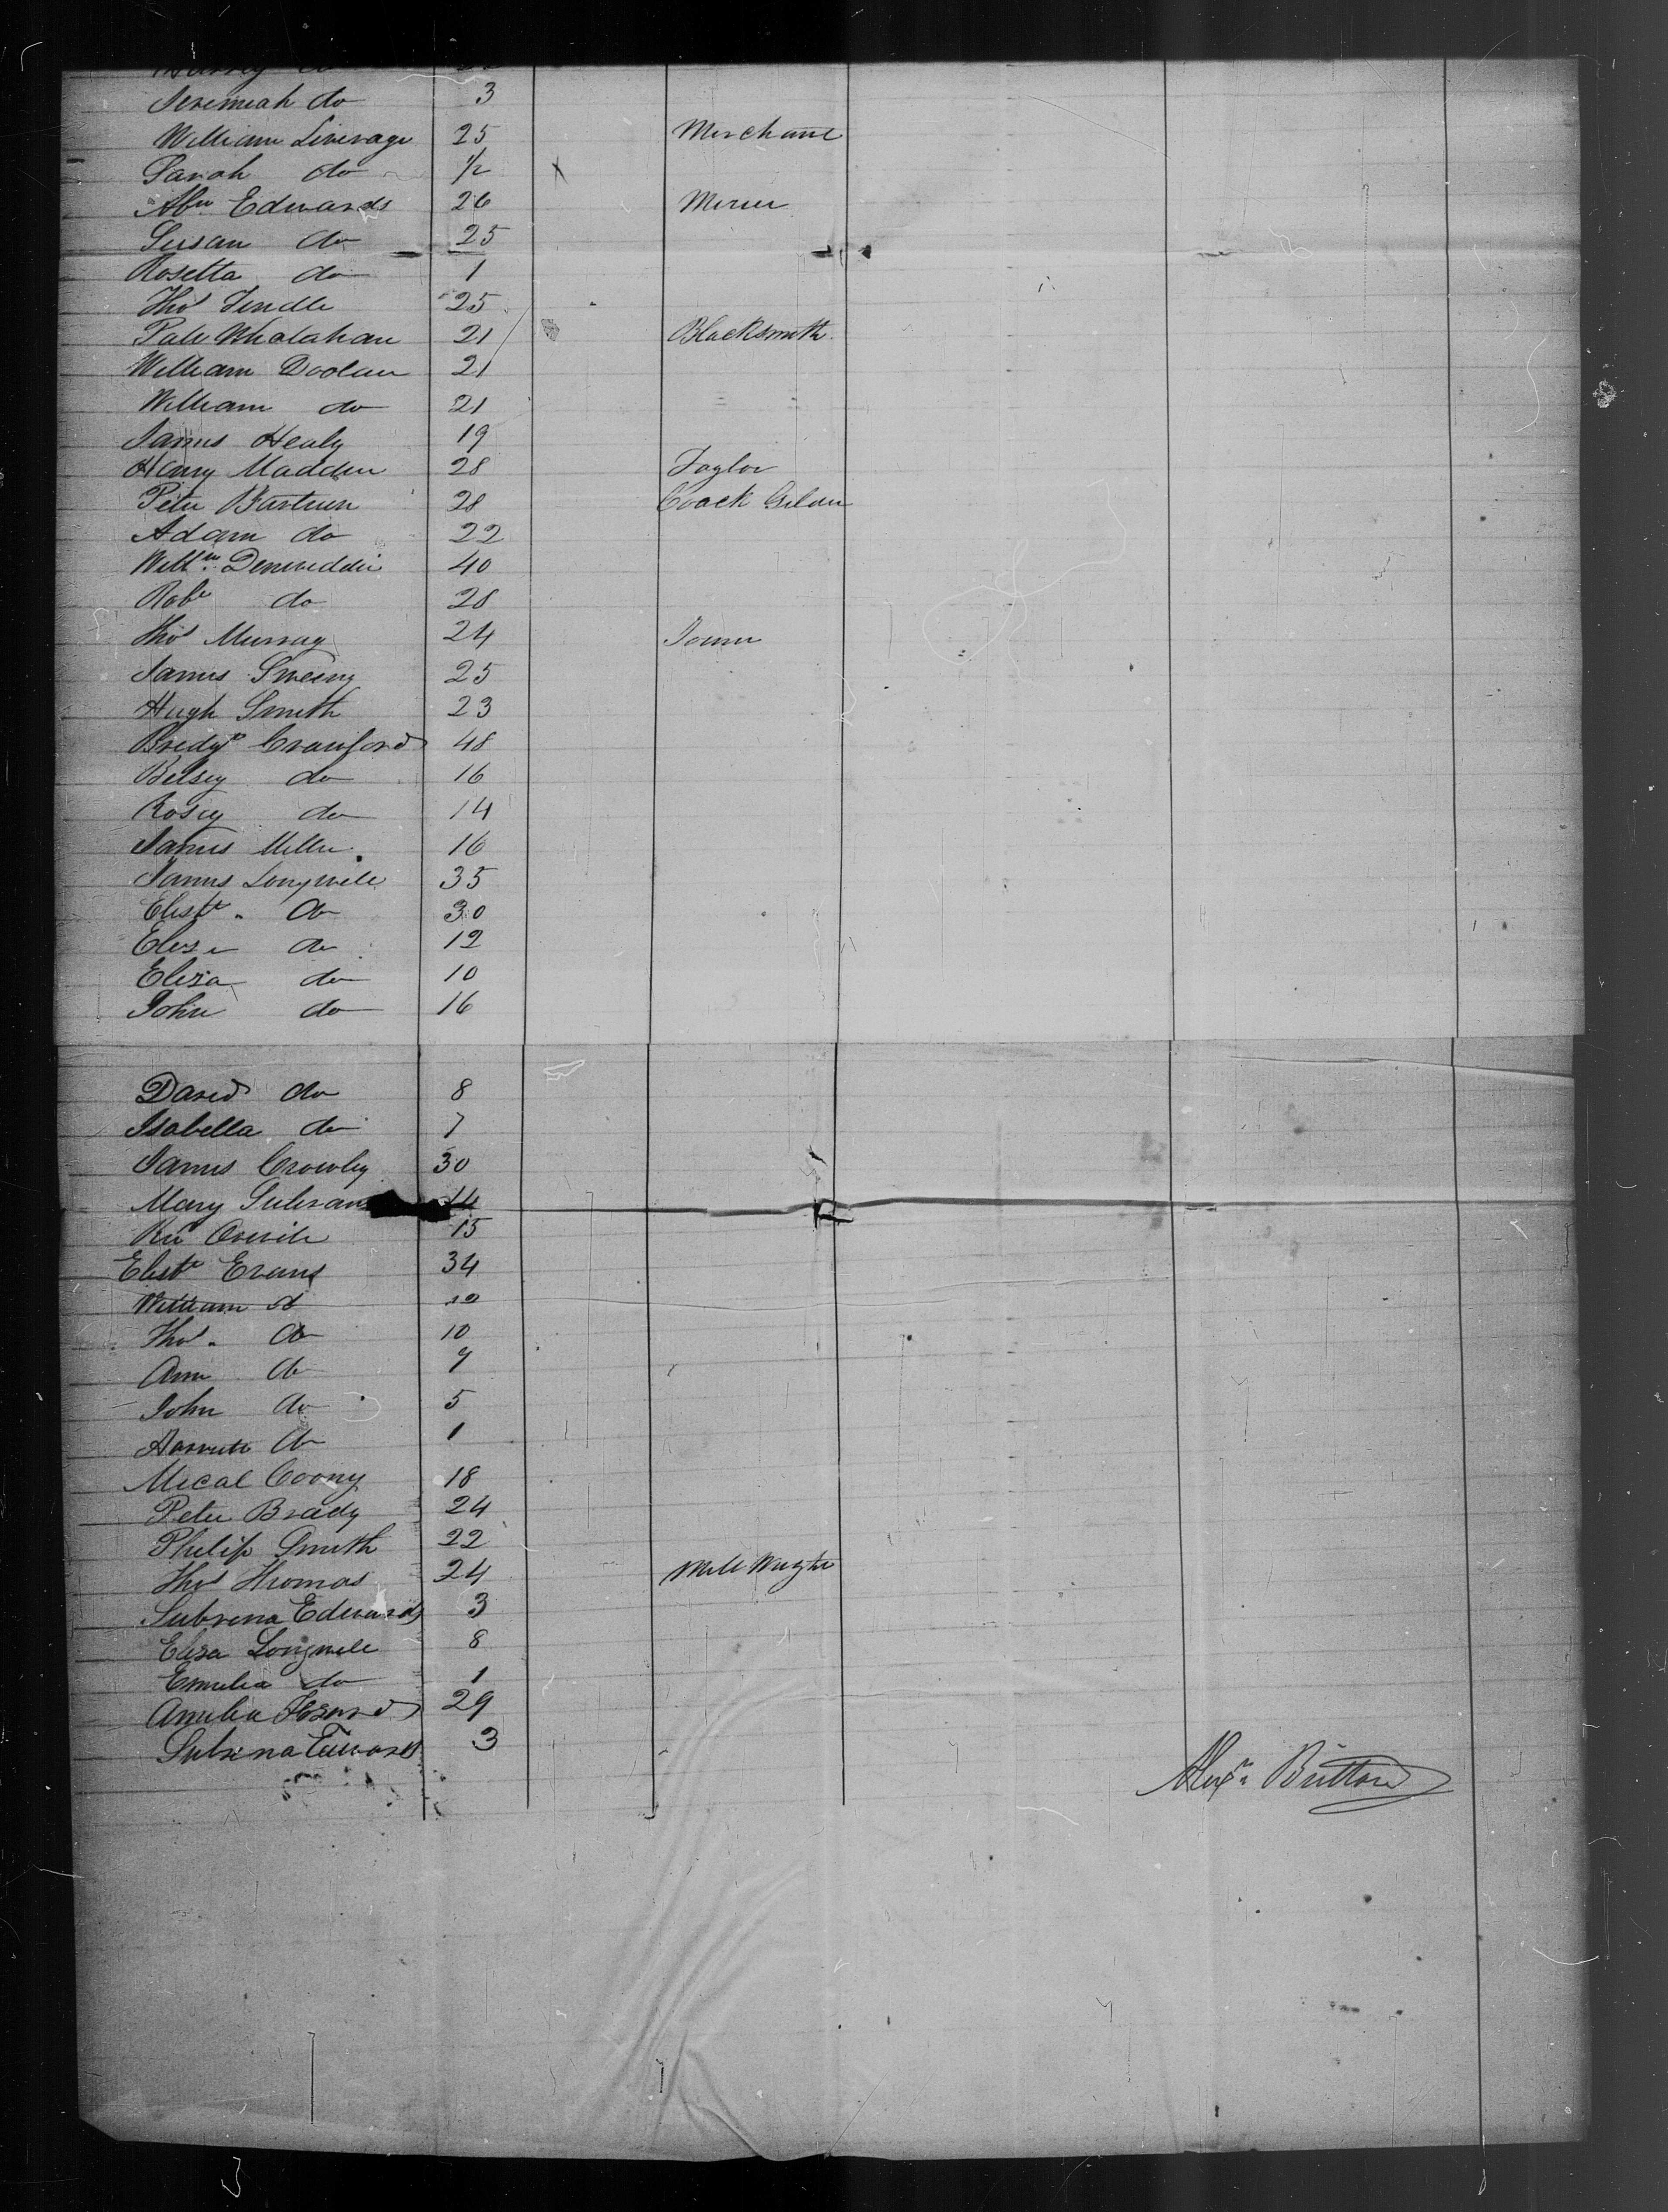 Jeremiah do 3
William Liverage 25 Merchant
Sarah do 1/2
Abm Edwards 26 Miner
Susan do 25
Rosetta do 1
Thos 25
Patk Whalahan 21 Blacksmith
William Doolan 21
William do 21
James Healy 19
Henry Madden 28 Taylor
Peter 28 Coack
Adam do 22
Willm 40
Robt do 28
Thos Murray 24 Joiner
James Sweeny 25
Hugh Smith 23
Bredgt Crawford 48
Betsey do 16
Rosey do 14
James Miller 16
James Longwele 35
Elisth do 30
do 12
Eliza do 10
John do 16
David do 8
Isabella do 7
James Crowley 30
Mary Sulivan 14
15
Elisth Evans 34
William do 12
Thos do 10
Ann do 7
John do 5
do 1
Mical Coony 18
Peter Brady 24
Philip Smith 22
Thos Thomas 24 Mill Wright
Subrena Edwards 3
Eliza Longwele 8
Emelia do 1
Amelia 29
Subrena Edwards 3
Alexr Britton